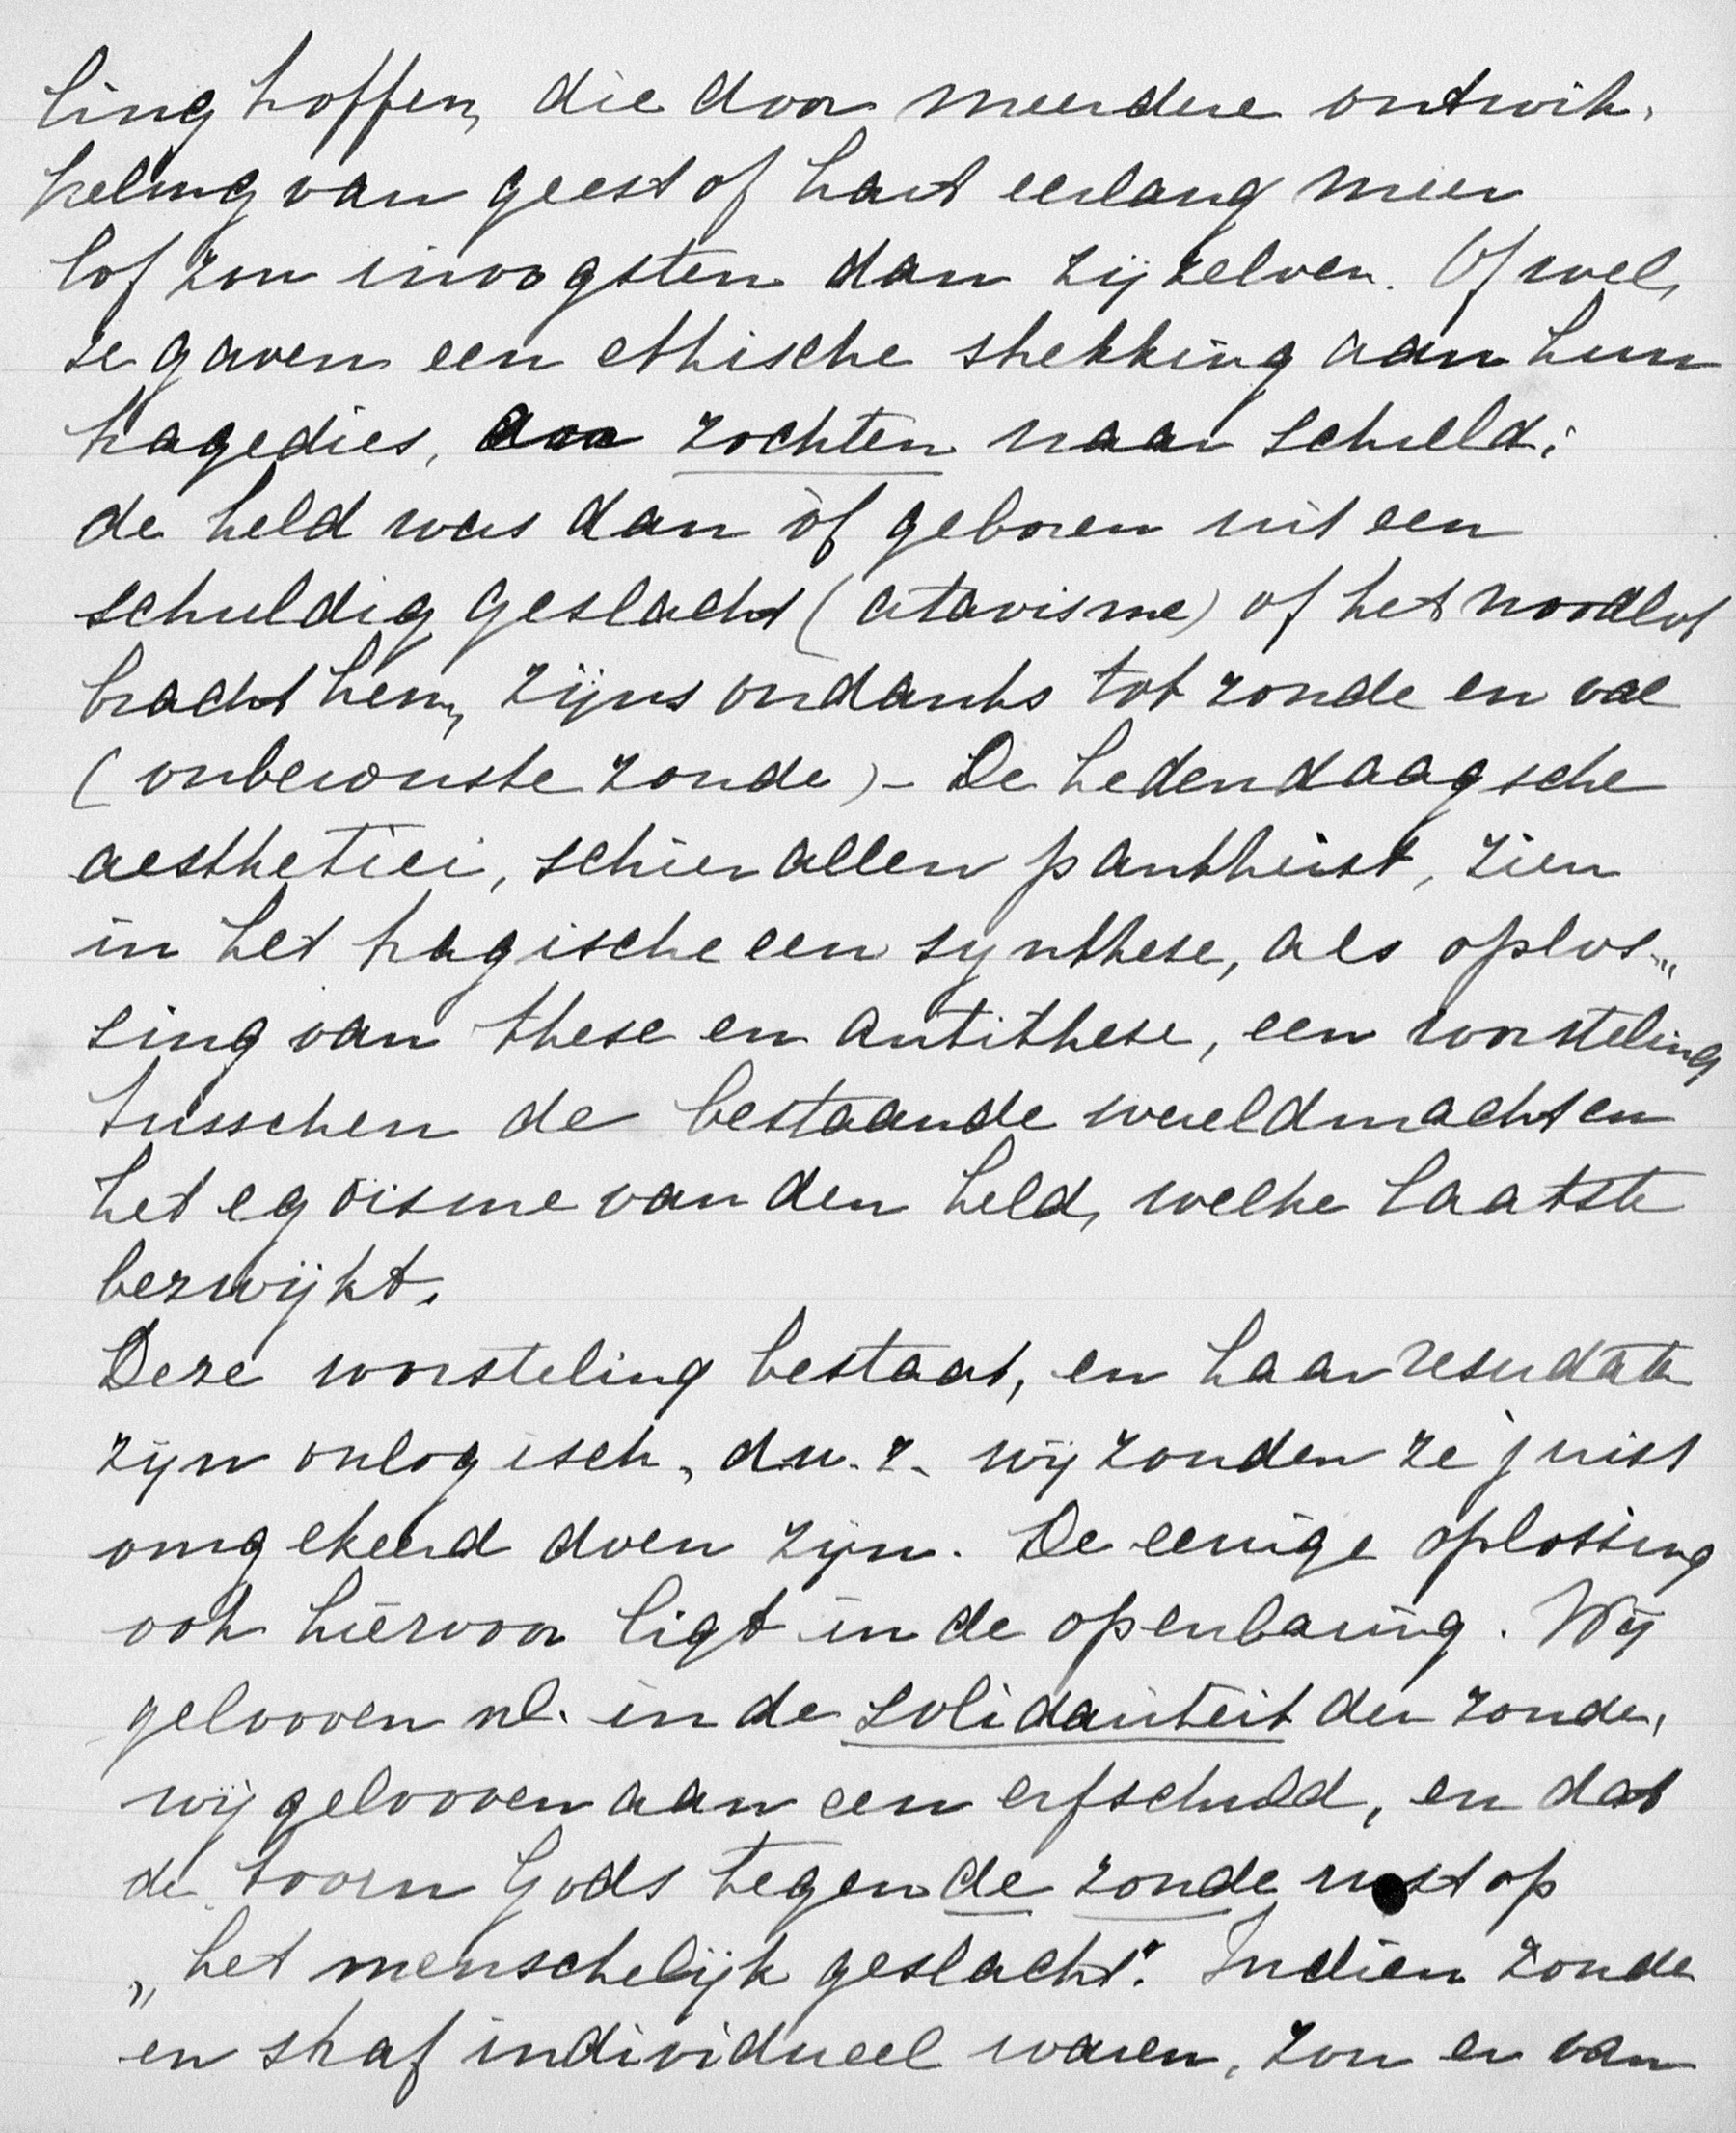 ling troffen, die door meerdere ontwik-
keling van geest of hart eerlang meer
lof zou inoogsten dan zij zelven. Of wel,
ze gaven een ethische strekking aan hun
tragedies, zochten naar schuld:
de held was dan òf geboren uit een
schuldig geslacht (atavisme) of het noodlot
bracht hem, zijns ondanks tot zonde en val
(onbewuste zonde) - De hedendaagsche
aesthetici, schier allen pantheist, zien
in het tragische een synthese, als oplos-
sing van these en antithese, een worsteling
tusschen de bestaande wereldmacht en
het egoïsme van den held, welke laatste
bezwijkt.
Deze worsteling bestaat, en haar resultaten
zijn onlogisch, d.w.z. wij zouden ze juist
omgekeerd doen zijn. De eenige oplossing
ook hiervoor ligt in de openbaring. Wij
gelooven nl. in de solidariteit der zonde,
wij gelooven aan een erfschuld, en dat
de toorn Gods tegen de zonde rust op
„het menschelijk geslacht". Indien zonde
en straf individueel waren, zou er van